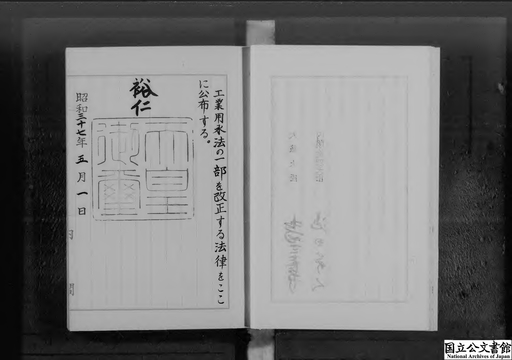 工業用水法の一部を改正する法律をここ
に公布する。
裕仁
天皇
御璽
昭和三十七年五月一日
国立公文書館
National Archives of Japan